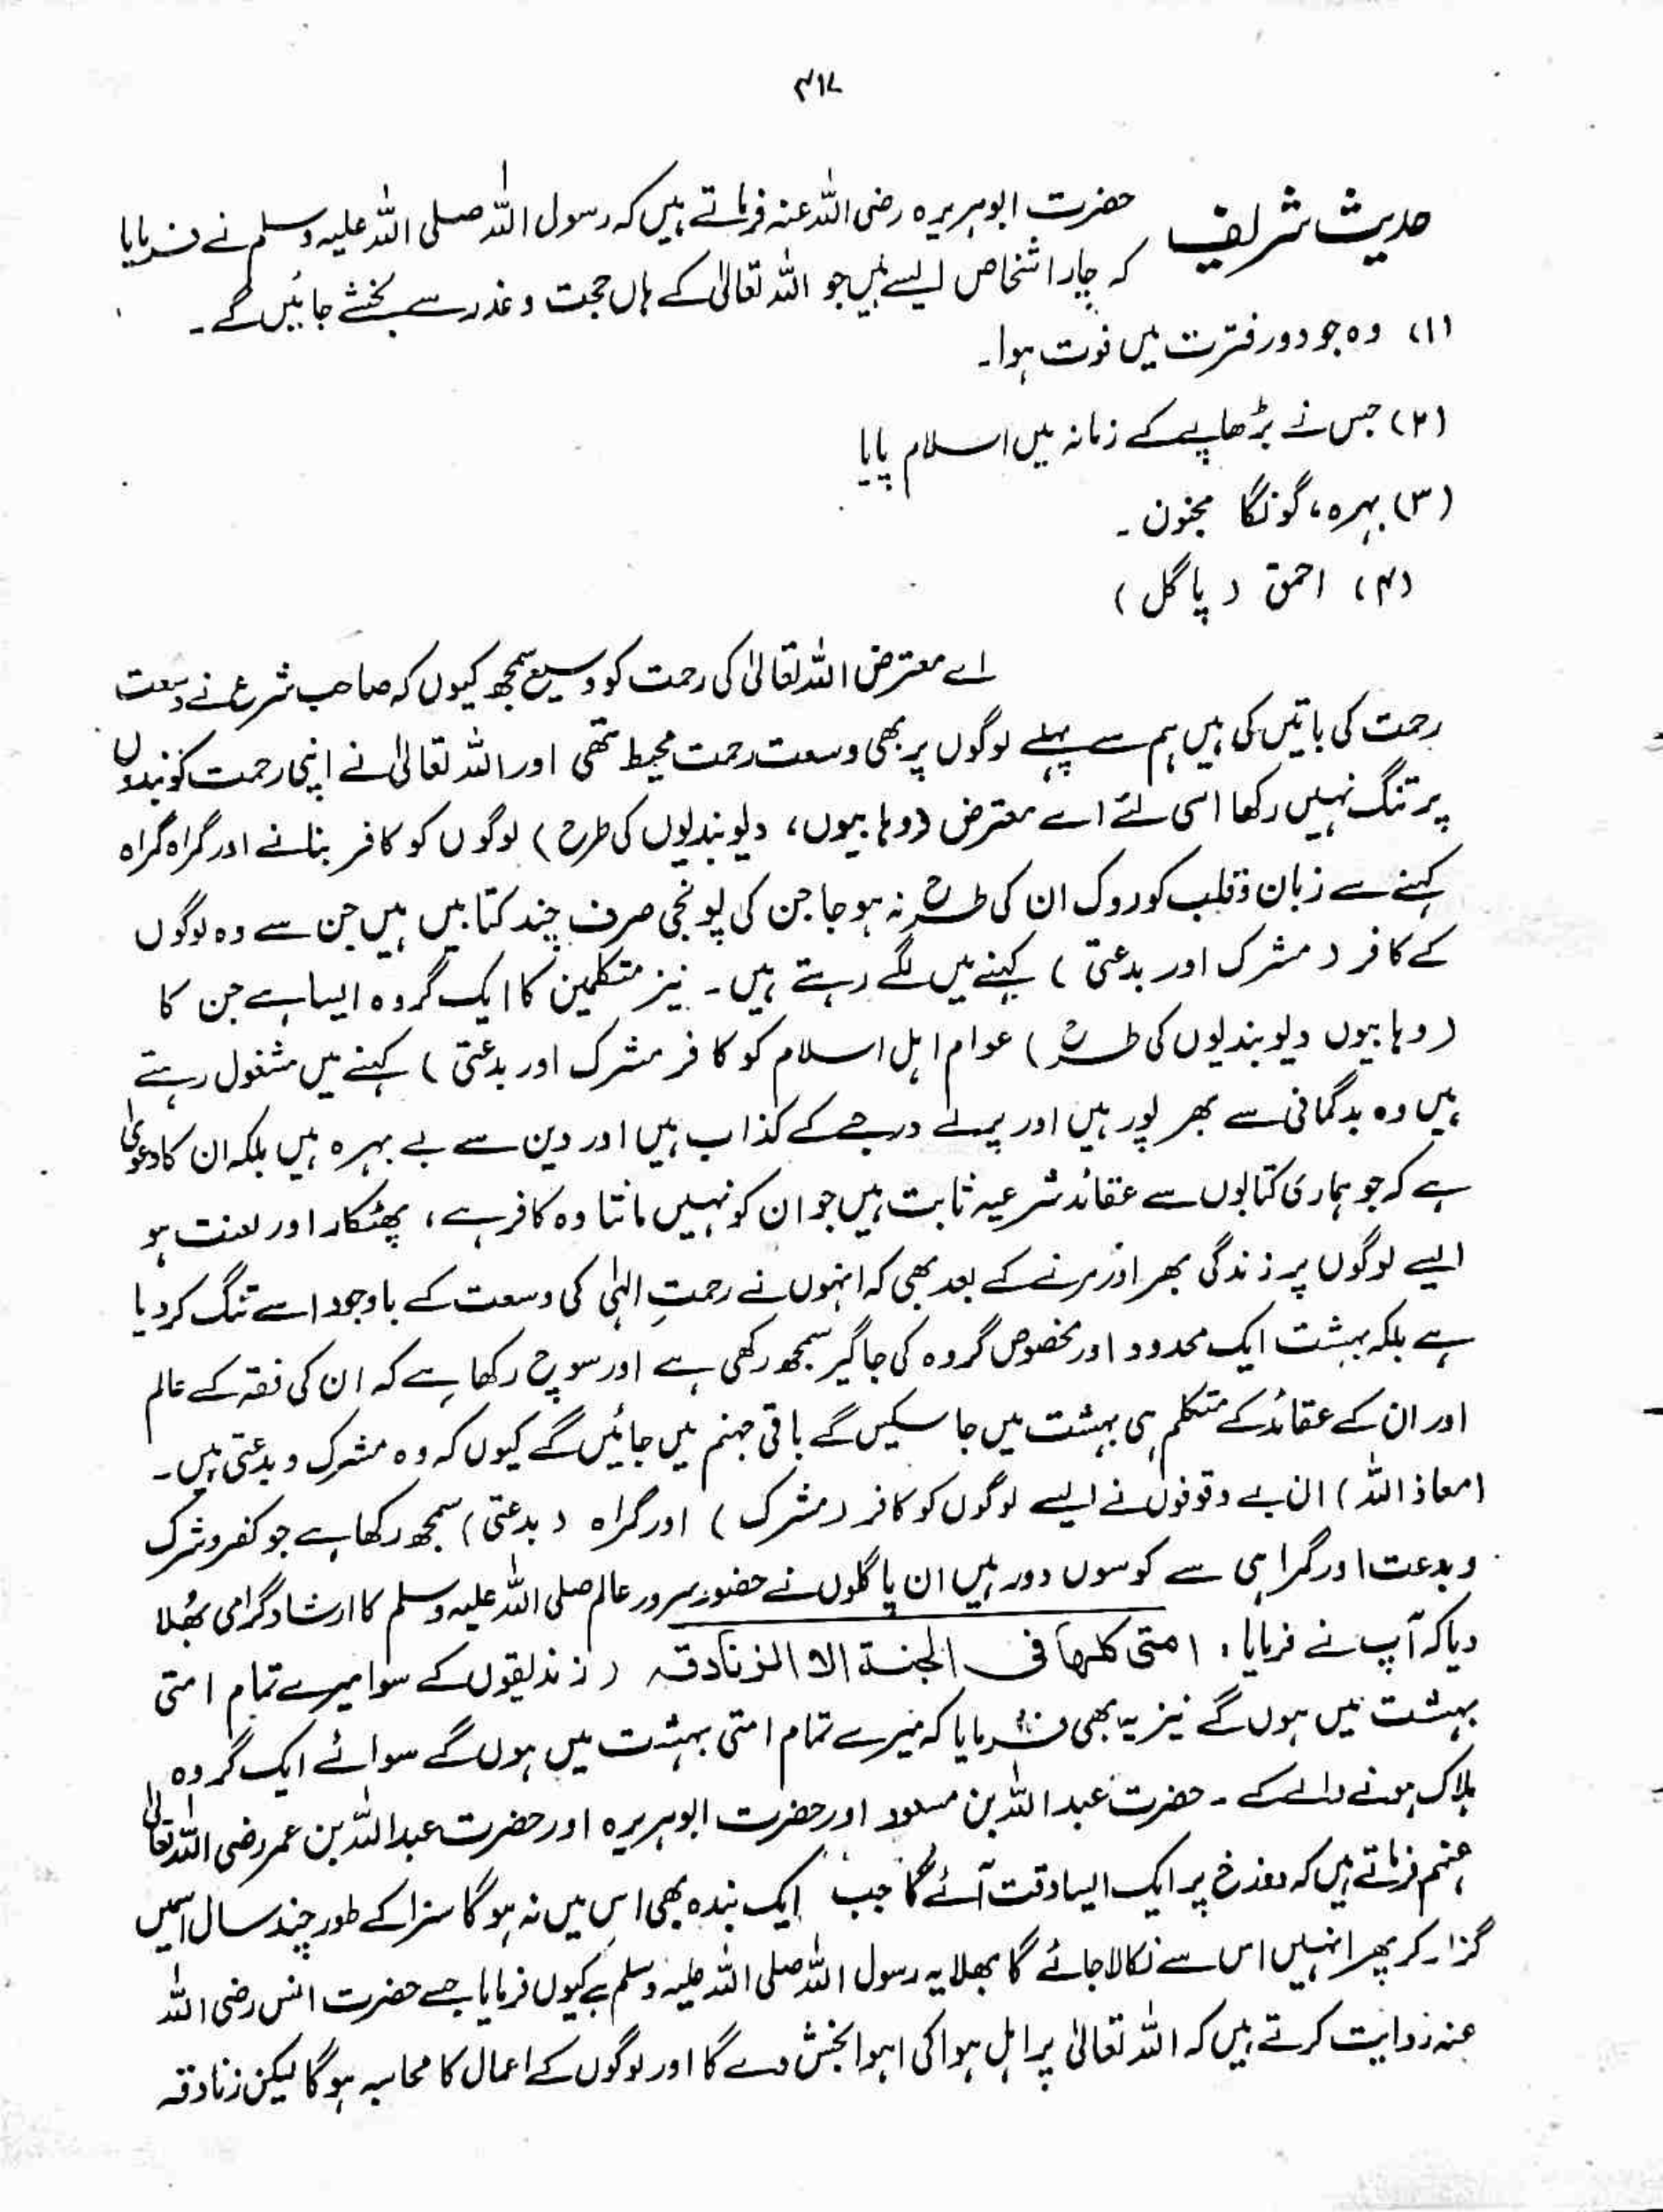 ۴۱۷
حدیث شریف حضرت ابوہریرہ رضی اللہ عنہ فرماتے ہیں کہ رسول اللہ صلی اللہ علیہ وسلم نے فرمایا
کہ چار اشخاص ایسے ہیں جو اللہ تعالیٰ کے ہاں حجت و عذر سے بخشے جائیں گے۔
(۱) وہ جو دور فترت میں فوت ہوا۔
(۲) جس نے بڑھاپے کے زمانہ میں اسلام پایا
(۳) بہرہ، گونگا مجنون۔
(۴) احمق (پاگل)
اے معترض اللہ تعالیٰ کی رحمت کو وسیع سمجھ کیوں کہ صاحب شرع نے وسعت
رحمت کی باتیں کی ہیں ہم سے پہلے لوگوں پر بھی وسعت رحمت محیط تھی اور اللہ تعالیٰ نے اپنی رحمت کو بندوں
پر تنگ نہیں رکھا اسی لئے اے معترض (وہابیوں، دیوبندیوں کی طرح) لوگوں کو کافر بنانے اور گمراہ گمراہ
کہنے سے زبان و قلب کو روک ان کی طرح نہ ہو جا جن کی پونجی صرف چند کتابیں ہیں جن سے وہ لوگوں
کے کافر (مشرک اور بدعتی) کہنے میں لگے رہتے ہیں۔ نیز متکلمین کا ایک گروہ ایسا ہے جن کا
(وہابیوں دیوبندیوں کی طرح) عوام اہل اسلام کو کافر مشرک اور بدعتی) کہنے میں مشغول رہتے
ہیں وہ بدگمانی سے بھرپور ہیں اور پرلے درجے کے کذاب ہیں اور دین سے بے بہرہ ہیں بلکہ ان کا دعویٰ
ہے کہ جو ہماری کتابوں سے عقائد شرعیہ ثابت ہیں جو ان کو نہیں مانتا وہ کافر ہے، پھٹکار اور لعنت ہو
ایسے لوگوں پر زندگی بھر اور مرنے کے بعد بھی کہ انہوں نے رحمتِ الٰہی کی وسعت کے باوجود اسے تنگ کر دیا
ہے بلکہ بہشت ایک محدود اور مخصوص گروہ کی جاگیر سمجھ رکھی ہے اور سوچ رکھا ہے کہ ان کی فقہ کے عالم
اور ان کے عقائد کے متکلم ہی بہشت میں جا سکیں گے باقی جہنم میں جائیں گے کیوں کہ وہ مشرک و بدعتی ہیں۔
(معاذ اللہ) ان بے وقوفوں نے ایسے لوگوں کو کافر (مشرک) اور گمراہ (بدعتی) سمجھ رکھا ہے جو کفر و شرک
و بدعت اور گمراہی سے کوسوں دور ہیں ان پاگلوں نے حضور سرور عالم صلی اللہ علیہ وسلم کا ارشاد گرامی بھُلا
دیا کہ آپ نے فرمایا، امتی کلہا فی الجنۃ الا الزنادقہ (زندیقوں کے سوا میرے تمام امتی
بہشت میں ہوں گے نیز یہ بھی فرمایا کہ میرے تمام امتی بہشت میں ہوں گے سوائے ایک گروہ
ہلاک ہونے والے کے۔ حضرت عبد اللہ بن مسعود اور حضرت ابوہریرہ اور حضرت عبد اللہ بن عمر رضی اللہ تعالیٰ
عنہم فرماتے ہیں کہ دوزخ پر ایک ایسا وقت آئے گا جب ایک بندہ بھی اس میں نہ ہوگا سزا کے طور چند سال اسمیں
گزار کر پھر انہیں اس سے نکالا جائے گا بھلا یہ رسول اللہ صلی اللہ علیہ وسلم نے کیوں فرمایا جسے حضرت انس رضی اللہ
عنہ روایت کرتے ہیں کہ اللہ تعالیٰ پر اہل ہوا کی اہوا بخش دے گا اور لوگوں کے اعمال کا محاسبہ ہوگا لیکن زنادقہ